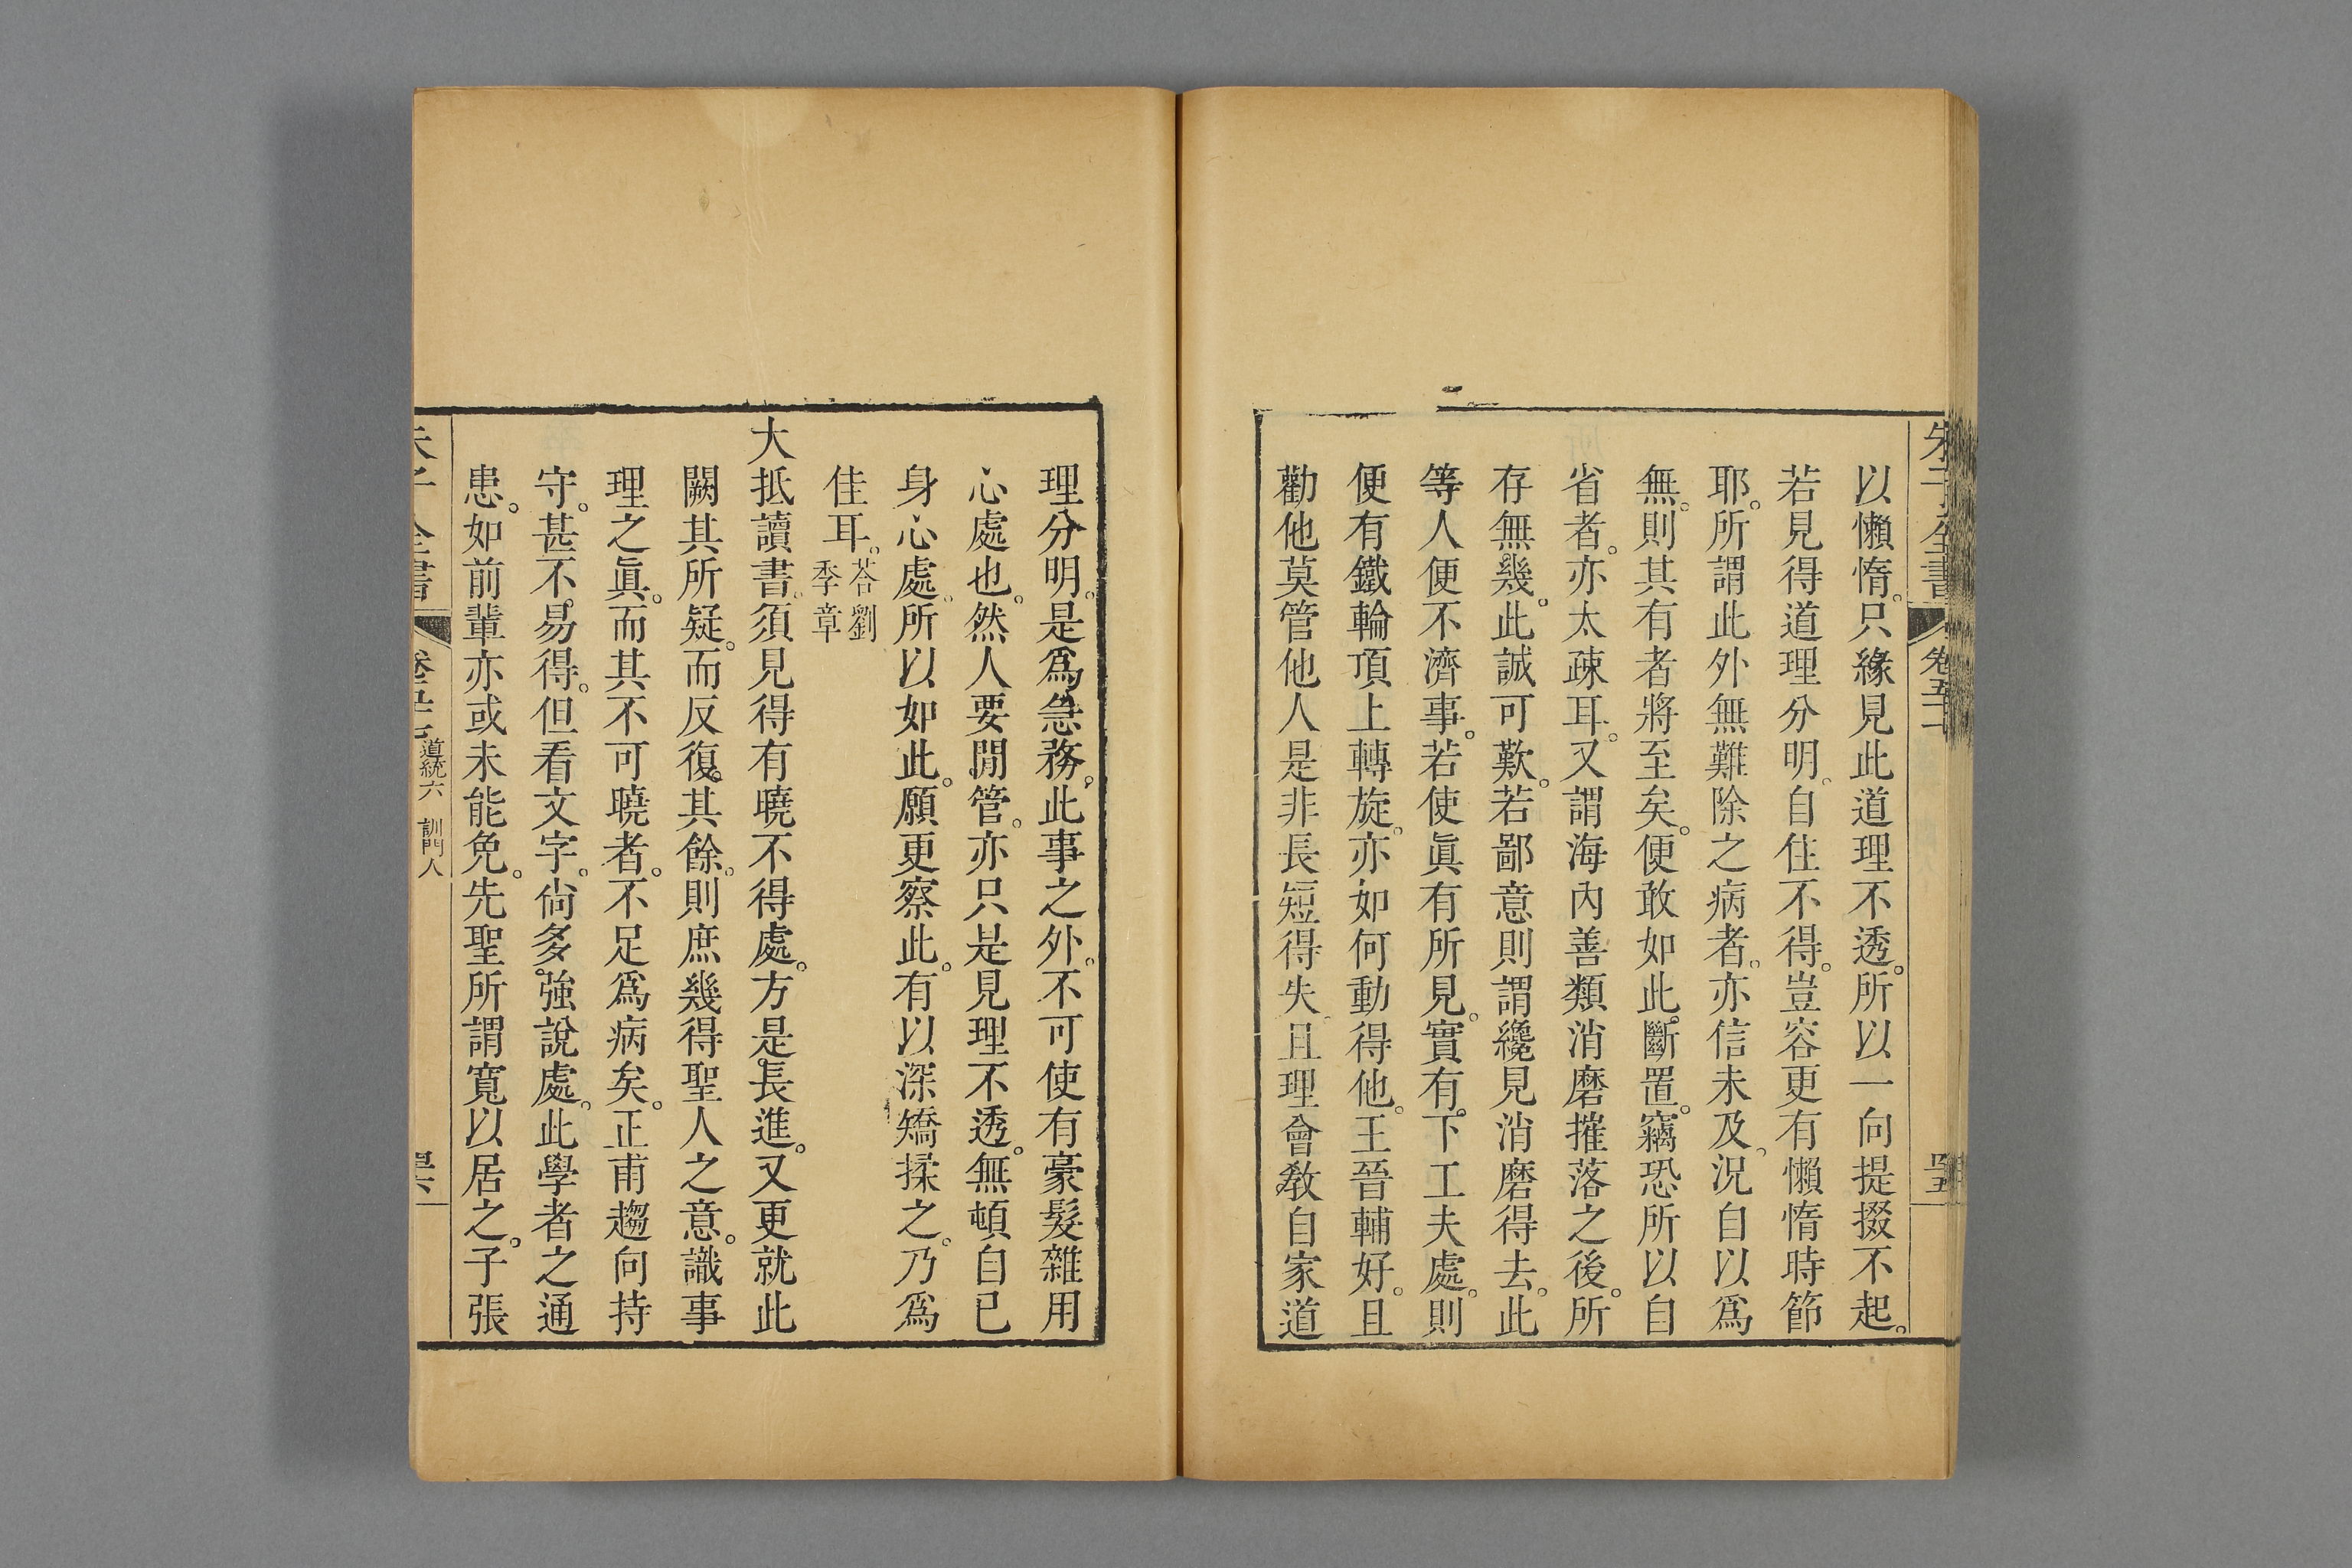 朱子全書 卷五十七 四十五
以懶惰。只緣見此道理不透。所以一向提掇不起。
若見得道理分明。自住不得。豈容更有懶惰時節
耶。所謂此外無難除之病者。亦信未及。況自以爲
無。則其有者將至矣。便敢如此斷置。竊恐所以自
省者。亦太疎耳。又謂海內善類消磨摧落之後。所
存無幾。此誠可歎。若鄙意則謂纔見消磨得去。此
等人便不濟事。若使眞有所見。實有下工夫處。則
便有鐵輪頂上轉旋。亦如何動得他。王晉輔好。且
勸他莫管他人是非長短得失。且理會教自家道
理分明。是爲急務。此事之外。不可使有豪髮雜用
心處也。然人要閒管。亦只是見理不透。無頓自己
身心處。所以如此。願更察此。有以深矯揉之。乃爲
佳耳。答劉季章
大抵讀書。須見得有曉不得處。方是長進。又更就此
闕其所疑。而反復其餘。則庶幾得聖人之意。識事
理之眞。而其不可曉者。不足爲病矣。正甫趨向持
守。甚不易得。但看文字。尙多強說處。此學者之通
患。如前輩亦或未能免。先聖所謂寬以居之。子張
朱子全書 卷五十七 道統六 訓門人 四十六